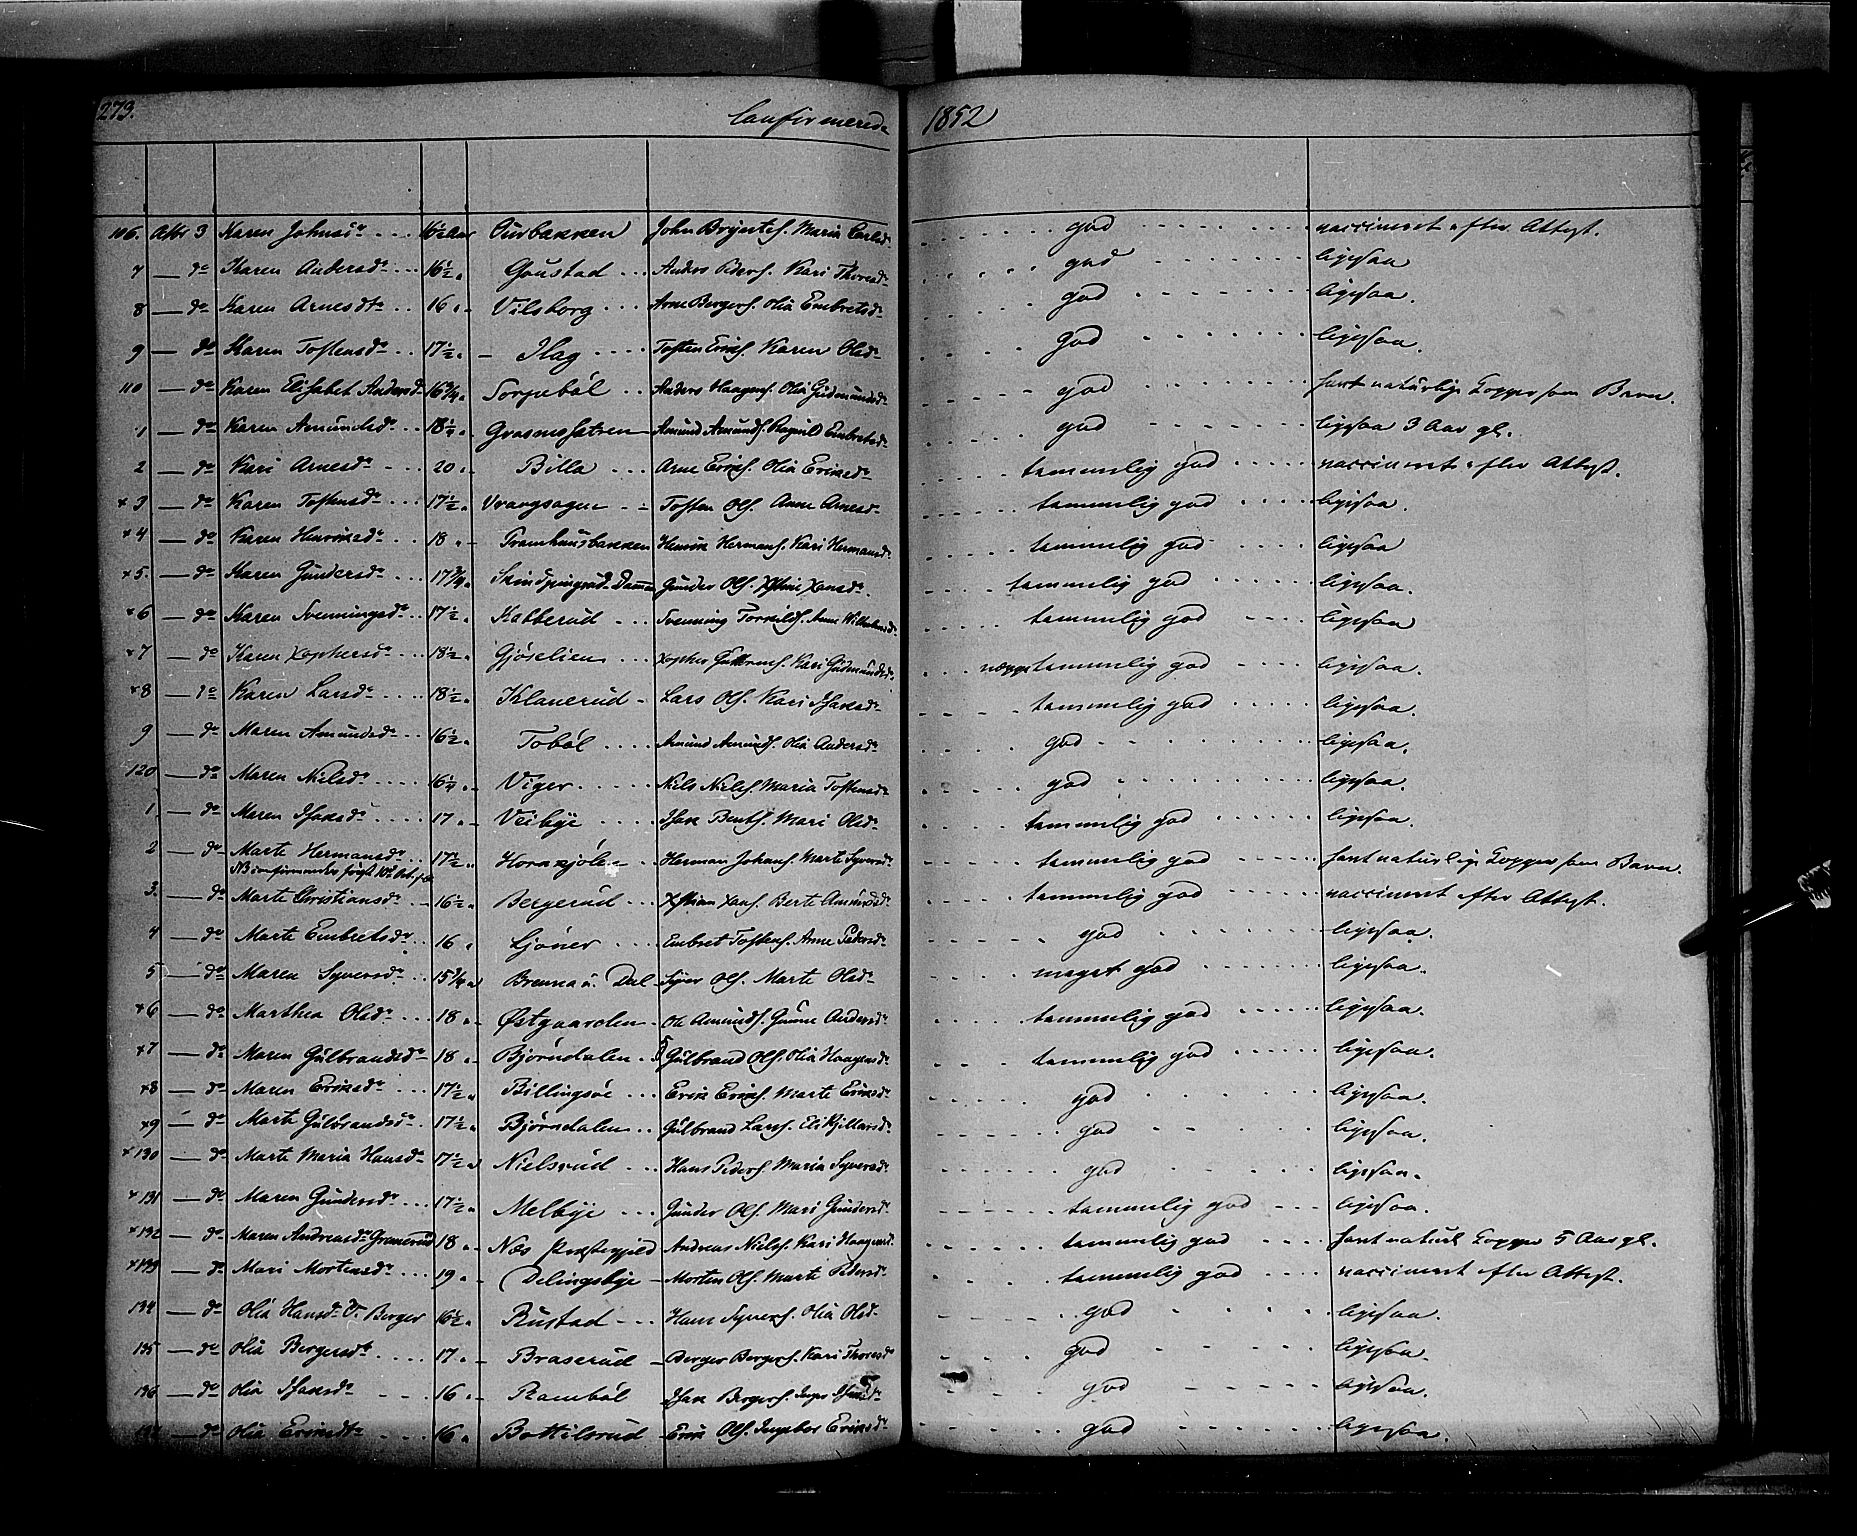 273. Confirmerede 1852
106. Octbr 3 Karen Johnsd. 16½ Aar Ourbakken John Bryntes. Maria Carlsd. god vaccineret efter Attest.
7 — do Karen Andersd. 16½ Goustad Anders Peders. Kari Thoresd. god ligesaa
8 — do Karen Arnesdt. 16 Vilsborg Arne Bergers. Olia Embretsd. god ligesaa.
9 — do Karen Tostensd. 17½ Hag Tosten Eriks. Karen Olsd. god ligesaa.
110 — do Karen Elisabet Andersd. 16¾ Sorpebøl Anders Haagens. Olia Gudmundsd. god havt naturlige Kopper som Barn.
1 — do Karen Amundsd. 18¼ Amund Amunds. Ragnild Embretsd. god ligesaa 3 Aar gl.
2 — do Kari Arnesd. 20 Billa Arne Eriks. Olia Eriksd. temmelig god vaccineret efter Attest.
×3 — do Karen Tostensd. 17½ Vrangsagen Tosten Ols. Anne Arnesd. temmelig god ligesaa.
×4 — do Karen Henriksd. 18 Framhuusbakken Henrik Hermans. Kari Hermansd. temmelig god ligesaa
×5. — do Karen Gundersd. 17¾ Gunder Ols. temmelig god ligesaa.
×6 — do Karen Svenningsd. 17½ Katterud Svenning Torkilds. Anne temmelig god ligesaa
×7 — do Karen Xophersd. 18½ Gjøselien Xopher Gulbrands. Kari Gudmundsd. neppe temmelig god ligesaa.
×8 — do Karen Larsd. 18½ Klanerud Lars Ols. Kari Isaksd. temmelig god ligesaa.
9 — do Maren Amundsd. 16½ Tobøl Amund Amunds. Olia Andersd. god ligesaa.
120 — do Maren Nielsd. 16¼ Viger Niels Niels. Maria Tostensd. god ligesaa.
1 — do Maren Isaksd. 17 Veibye Isak Bents. Mari Olsd. temmelig god ligesaa.
2 — do Marte Hermansd. 17½ Hornkjøl Herman Johans. Marte Syversd. temmelig god havt naturlige Kopper som Barn.
NB confirmeredes først 10de Oct.
3. — do Marte Christiansd. 16½ Bergerud Xstian Xans. Berte Amundsd. temmelig god vaccineret efter Attest.
4 — do Marte Embretsd. 16 Ljøner Embret Tostens. Anne Pedersd. god ligesaa.
5 — do Maren Syversd. 15¾ Brenna u. Dal Syver Ols. Marte Olsd. meget god ligesaa.
×6 — do Marthea Olsd. 18 Østgaarden Ole Amunds. Gunne Andersd. temmelig god ligesaa.
×7 — do Maren Gulbrandsd. 18 Bjørndalen Gulbrand Ols. Olia Haagensd. temmelig god ligesaa.
×8 — do Maren Eriksd. 17½ Billingsøe Erik Eriks. Marte Eriksd. god ligesaa.
×9 — do Marte Gulbrandsd. 17½ Bjørndalen Gulbrand Lars. Eli Kjillarsd. god ligesaa.
×130 — do Marte Maria Hansd. 17½ Nielsrud Hans Peders. Maria Syversd. god ligesaa.
×131 — do Maren Gundersd. 17½ Melbye Gunder Ols. Mari Gundersd. temmelig god ligesaa.
×132 — do Maren Andreasd. Granerud 18 Næs Præstegjeld Andreas Niels. Kari Haagensd. temmelig god havt naturl. Kopper 5 Aar gl.
×133 — do Mari Mortensd. 19 Delingsbye Morten Ols. Marte Pedersd. temmelig god vaccineret efter Attest.
134 — do Olia Hansd. v. Berger 16½ Rustad Hans Syvers. Olia Olsd. god ligesaa.
135 — do Olia Bergersd. 17 Braserud Berger Bergers. Kari Thoresd. god ligesaa.
136 — do Olia Isaksd. 16 Rambøl Isak Bergers. god ligesaa.
137 — do Olia Eriksdt. 16 Bottilsrud Erik Ols. Ingebor Eriksd. god ligesaa.